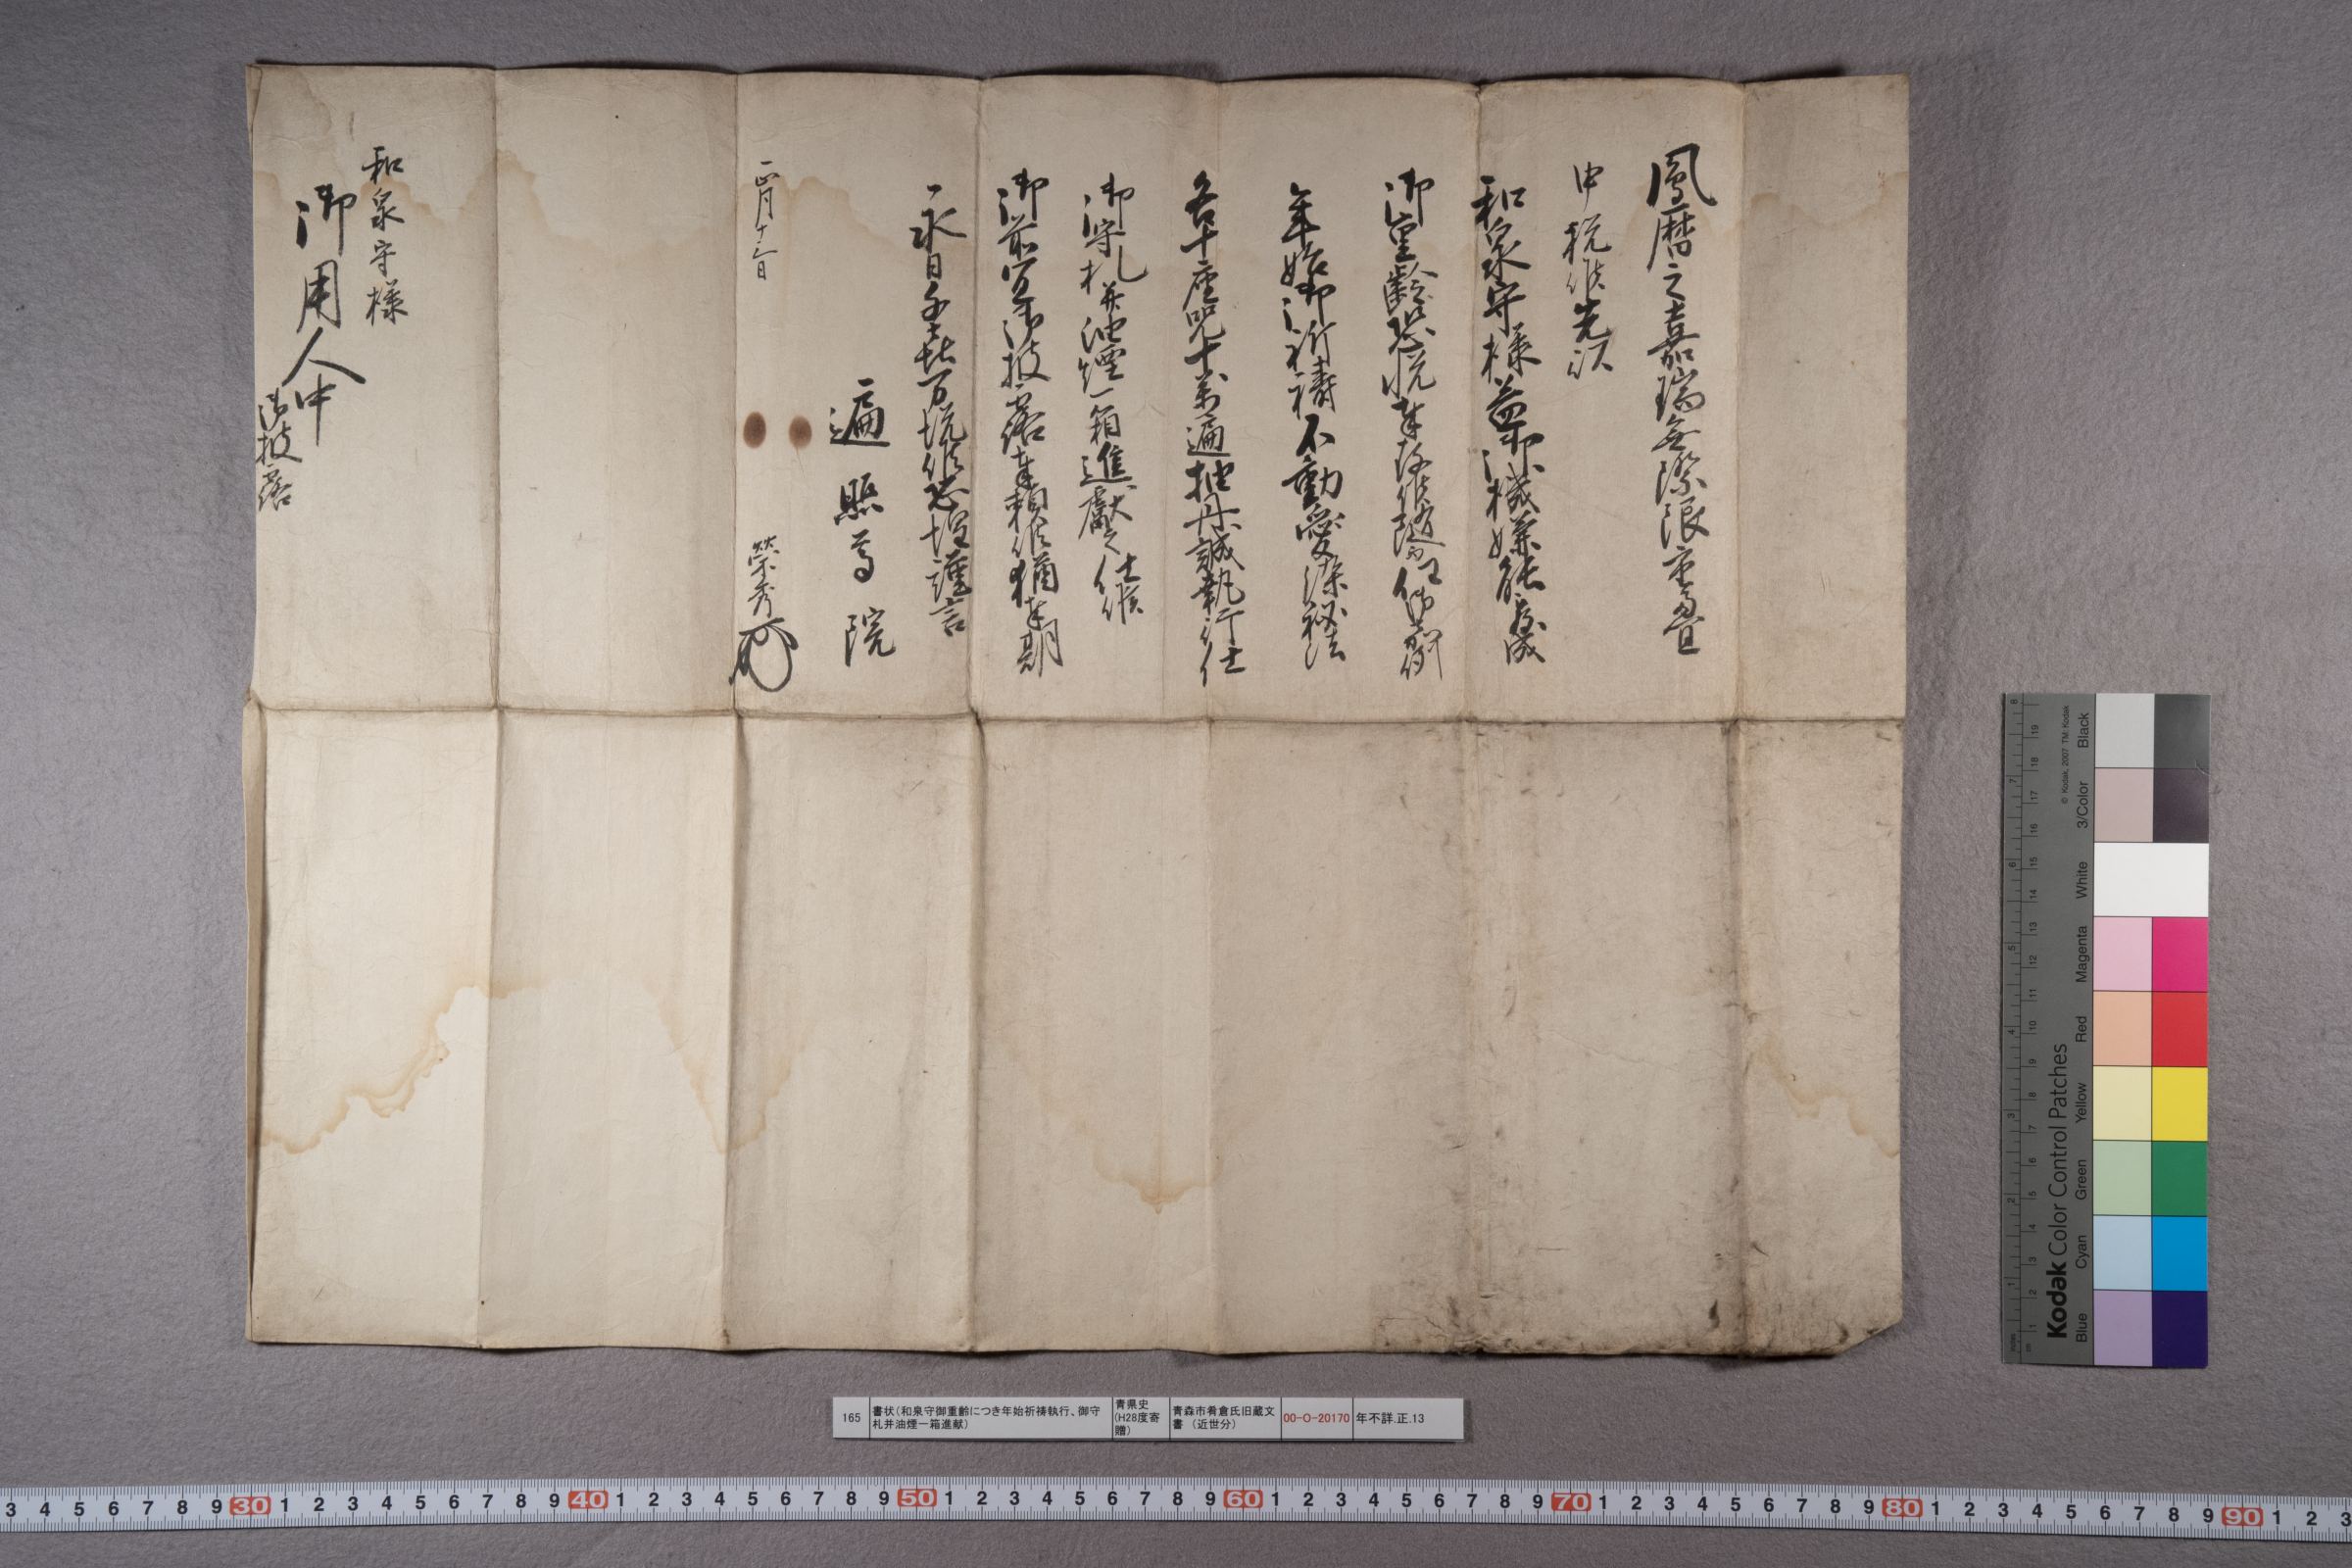 鳳暦之嘉瑞無際限重畳
申税候先以
和泉守様益御機嫌能被為成
御重齢恐悦奉存候随而如御嘉例
年始御祈祷不動愛染秘法
各十座呪十萬遍抽丹誠執行仕
御守札并油煙一箱進獻之仕候
御前宜御披露奉頼候猶奉期
永日千喜万悦候恐惶謹言
遍照尊院
正月十三日
榮秀
和泉守様
御用人中
御披露
165
書状(和泉守御重齢につき年始祈祷執行、御守
札并油煙一箱進献)
青県史
(H28度寄
贈)
青森市肴倉氏旧蔵文
書 (近世分)
00-O-20170
年不詳.正.13
Kodak Color Control Patches
© Kodak, 2007 TM: Kodak
Blue Cyan Green Yellow Red Magenta White 3/Color Black
3 4 5 6 7 8 9 30 1 2 3 4 5 6 7 8 9 40 1 2 3 4 5 6 7 8 9 50 1 2 3 4 5 6 7 8 9 60 1 2 3 4 5 6 7 8 9 70 1 2 3 4 5 6 7 8 9 80 1 2 3 4 5 6 7 8 9 90 1 2 3